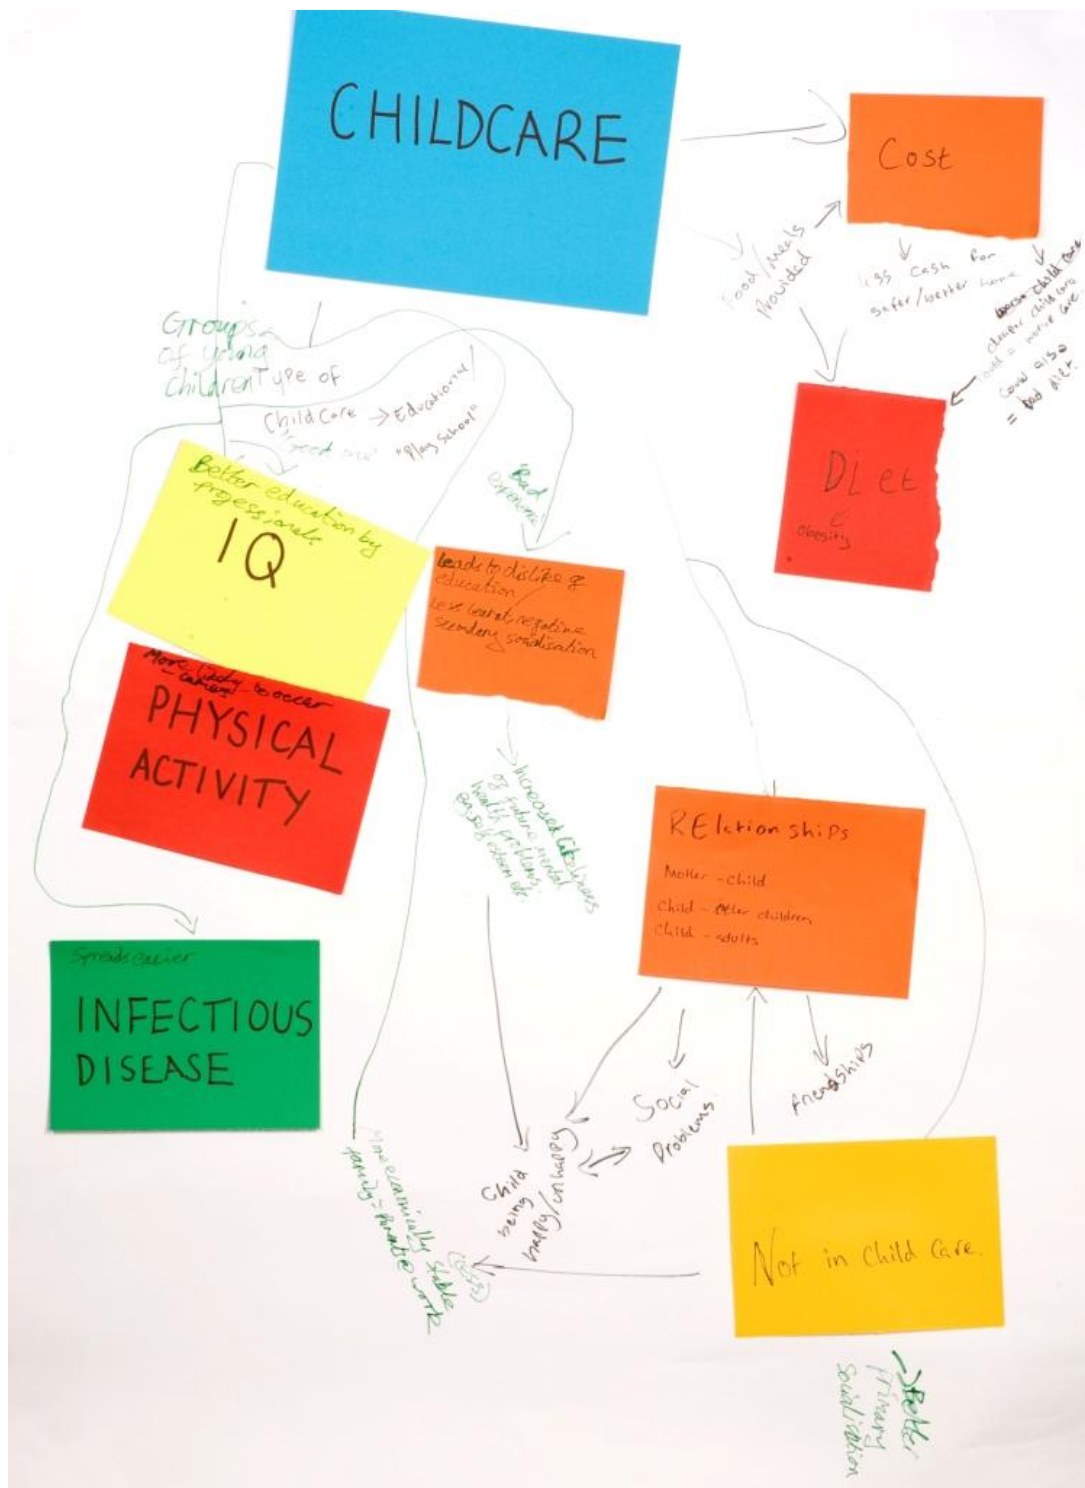 CHILDCARE
Cost
Food/Meals
Provided
less cash for
safer/better home
cheaper child care
could = worse care.
could also
= bad diet.
Diet
obesity
Groups
of young
children
Type of
Child Care → Educational/
"Good one" "Play school"
"Bad
experience"
Better education by
professionals
IQ
Leads to dislike of
education
Less learnt, negative
secondary socialisation
More likely to occur
PHYSICAL
ACTIVITY
Increased likeliness
of future mental
health problems,
eg self esteem etc.
RElationships
Mother - child
Child - other children
Child - adults
Spreads easier
INFECTIOUS
DISEASE
Social
Problems
friendships
Child
being
happy/unhappy
More economically stable
family = Parents @ work
(less)
Not in Child Care.
→Better
Primary
Socialisation